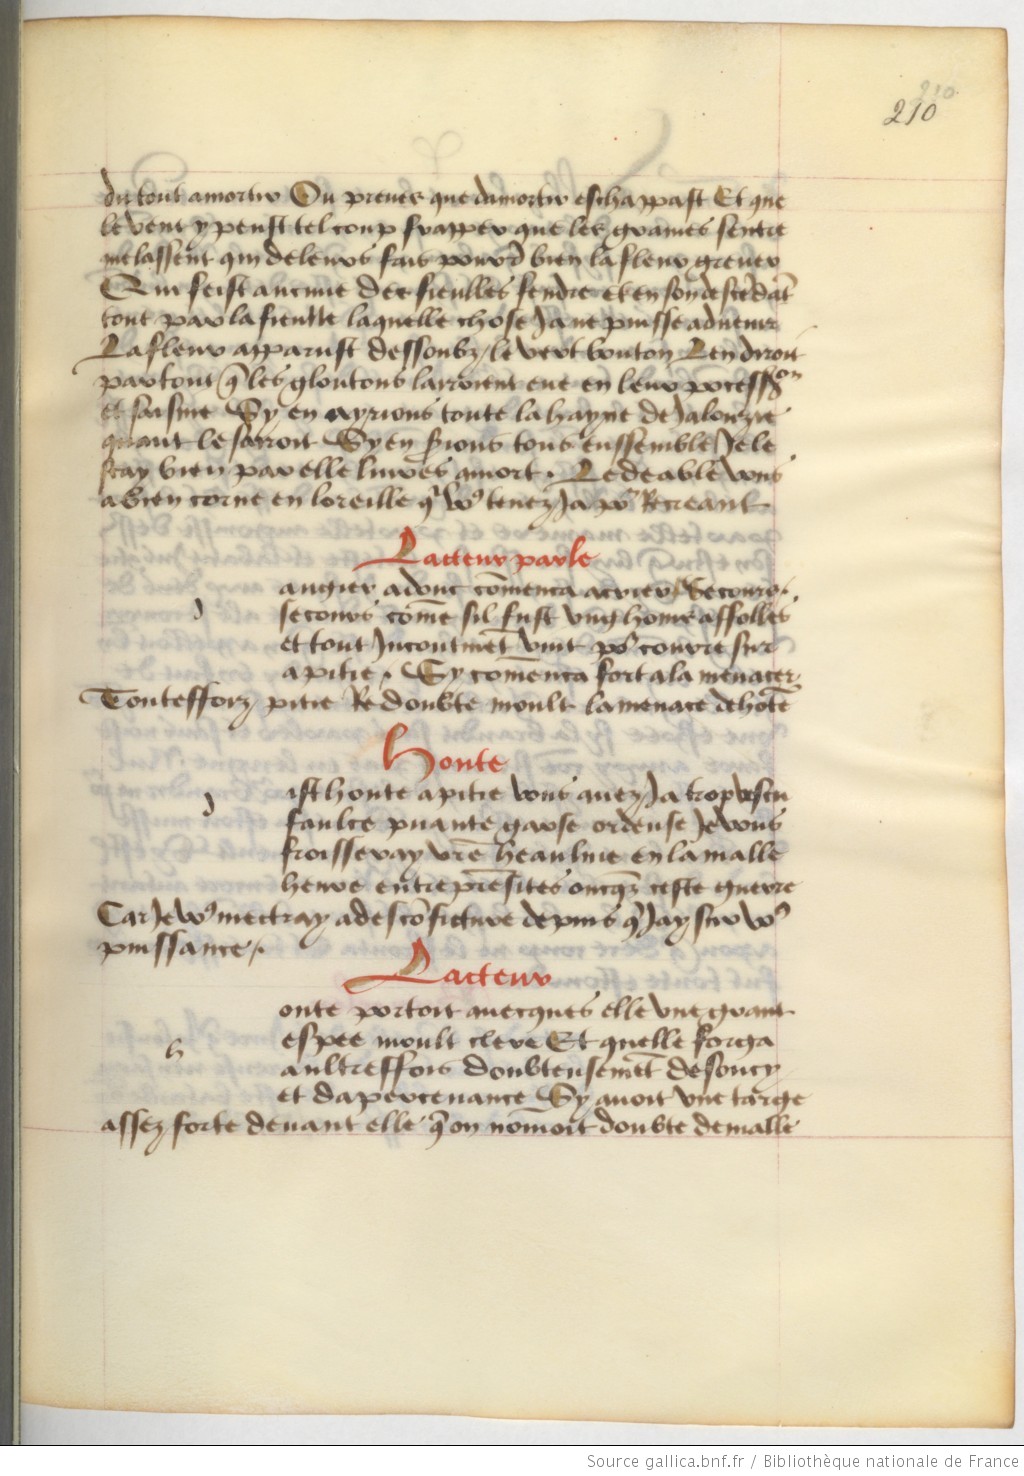 210
210
du tout amortir Ou prenes que damortir eschappast Et que
le vent y peust tel coup frapper que les graines sentre
mellassent qui de leurs fais pourrõt bien la fleur grever
Qui feist aucune des fieulles fendre et en son descẽdãt
tout par la fiente laquelle chose Ja ne puisse advenir
La fleur apparust dessoubz le vert bouton Len diroit
par tout q̃ les gloutons larroient eue en leur possess̃on
et saisine Sy en ayrions toute la hayne de Jalouzie
quant le saroit Sy en serions tous enssemble Je le
scay bien par elle livres a mort. Le deable vous
a bien corne en loreille q̃ voꝰ tenez Ja poꝰ Recreant
Lacteur parle
angier adonc cõmenca a crier Secours.
secours cõme sil fust ung home affolles
et tout Incontinẽt vint pꝰ courre sur
a pitie. Sy cõmenca fort a la menacer
Touteffoiz pitie Redoubte moult la menace de hõte
Honte
d
ist honte a pitie vous avez Ja trop vescu
faulce puante garse ordeuse Je vous
froisseray vr̃e heaulme en la malle
heure entreprẽsites oncqz ceste guerre
Car Je voꝰ mectray a descõfiture depuis q̃ Jay sur voꝰ
puissance.
Lacteur
h
onte portoit avecques elle une grant
espee moult clere Et quelle forga
aultreffois doubteusemẽt de soucy
et dapercevance Sy avoit une targe
assez forte devant elle q̃ on nõmoit doubte de malle
Source gallica.bnf.fr / Bibliothèque nationale de France